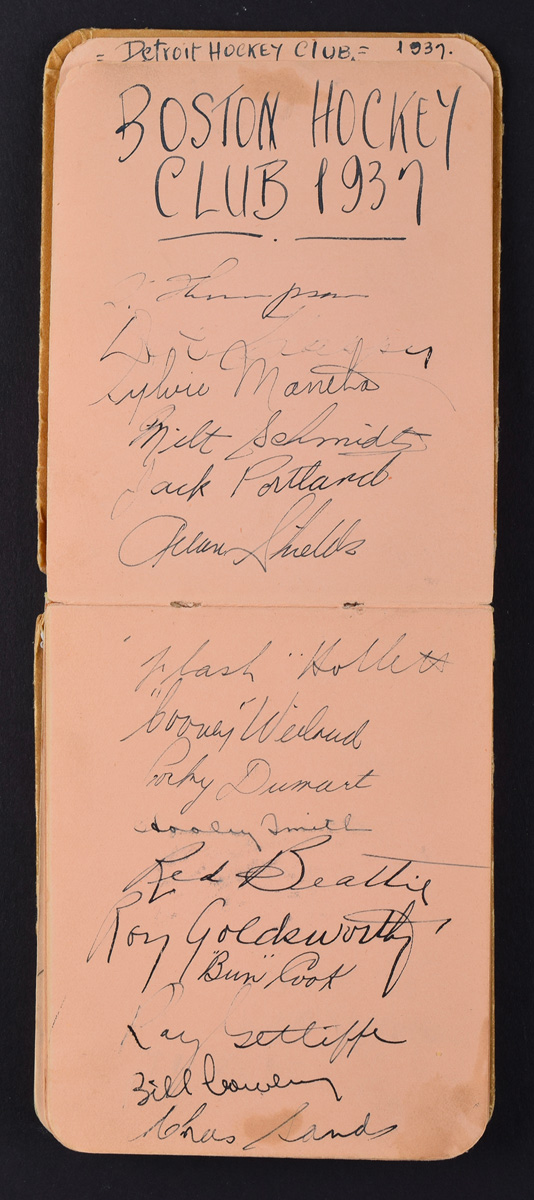 = Detroit Hockey Club. = 1937.
BOSTON HOCKEY
CLUB 1937
Thompson
Sylvio Mantha
Milt Schmidt
Jack Portland
Allan Shields
"Flash" Hollett
"Cooney" Weiland
Porky Dumart
Hooley Smith
Red Beattie
Roy Goldsworthy
"Bun" Cook
Ray Getliffe
Bill Cowley
Chas Sands